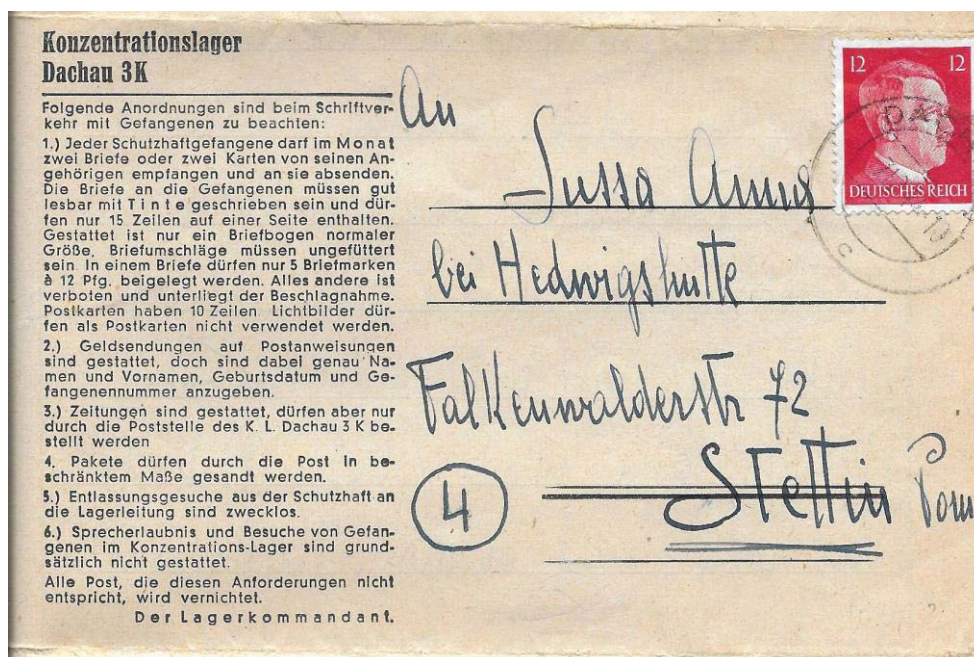 Konzentrationslager
Dachau 3K
Folgende Anordnungen sind beim Schriftver-
kehr mit Gefangenen zu beachten:
1.) Jeder Schutzhaftgefangene darf im Monat
zwei Briefe oder zwei Karten von seinen An-
gehörigen empfangen und an sie absenden.
Die Briefe an die Gefangenen müssen gut
lesbar mit Tinte geschrieben sein und dür-
fen nur 15 Zeilen auf einer Seite enthalten.
Gestattet ist nur ein Briefbogen normaler
Größe. Briefumschläge müssen ungefüttert
sein. In einem Briefe dürfen nur 5 Briefmarken
à 12 Pfg. beigelegt werden. Alles andere ist
verboten und unterliegt der Beschlagnahme.
Postkarten haben 10 Zeilen. Lichtbilder dür-
fen als Postkarten nicht verwendet werden.
2.) Geldsendungen auf Postanweisungen
sind gestattet, doch sind dabei genau Na-
men und Vornamen, Geburtsdatum und Ge-
fangenennummer anzugeben.
3.) Zeitungen sind gestattet, dürfen aber nur
durch die Poststelle des K. L. Dachau 3 K be-
stellt werden
4. Pakete dürfen durch die Post in be-
schränktem Maße gesandt werden.
5.) Entlassungsgesuche aus der Schutzhaft an
die Lagerleitung sind zwecklos.
6.) Sprecherlaubnis und Besuche von Gefan-
genen im Konzentrations-Lager sind grund-
sätzlich nicht gestattet.
Alle Post, die diesen Anforderungen nicht
entspricht, wird vernichtet.
Der Lagerkommandant.
An
Sussa Anna
bei Hedwigshutte
Falkenwalderstr 72
4
Stettin Pom
12 12
DEUTSCHES REICH
DA
c